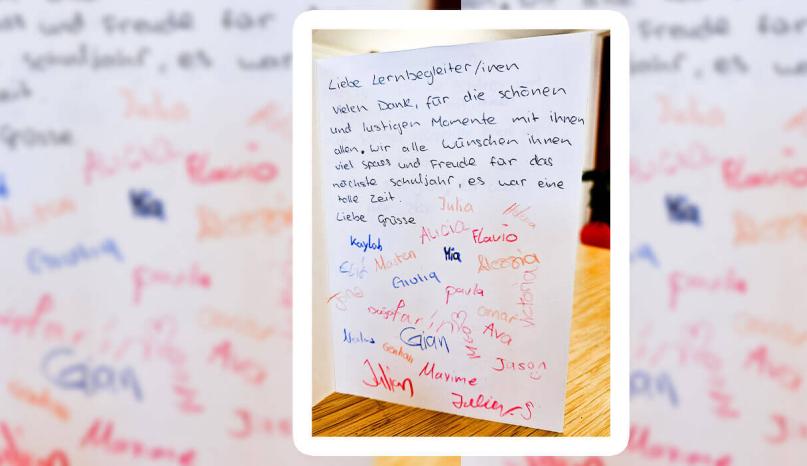 Liebe Lernbegleiter/inen
vielen Dank, für die schönen
und lustigen Momente mit ihnen
allen. Wir alle wünschen ihnen
viel Spass und Freude für das
nächste Schuljahr, es war eine
tolle Zeit.
Liebe Grüsse
Julia
Alicia Flavio
Kaylah Mia
Giulia
Paula
Victoria
Omar
Gian Ava
Jason
Julian Maxime
Julian S